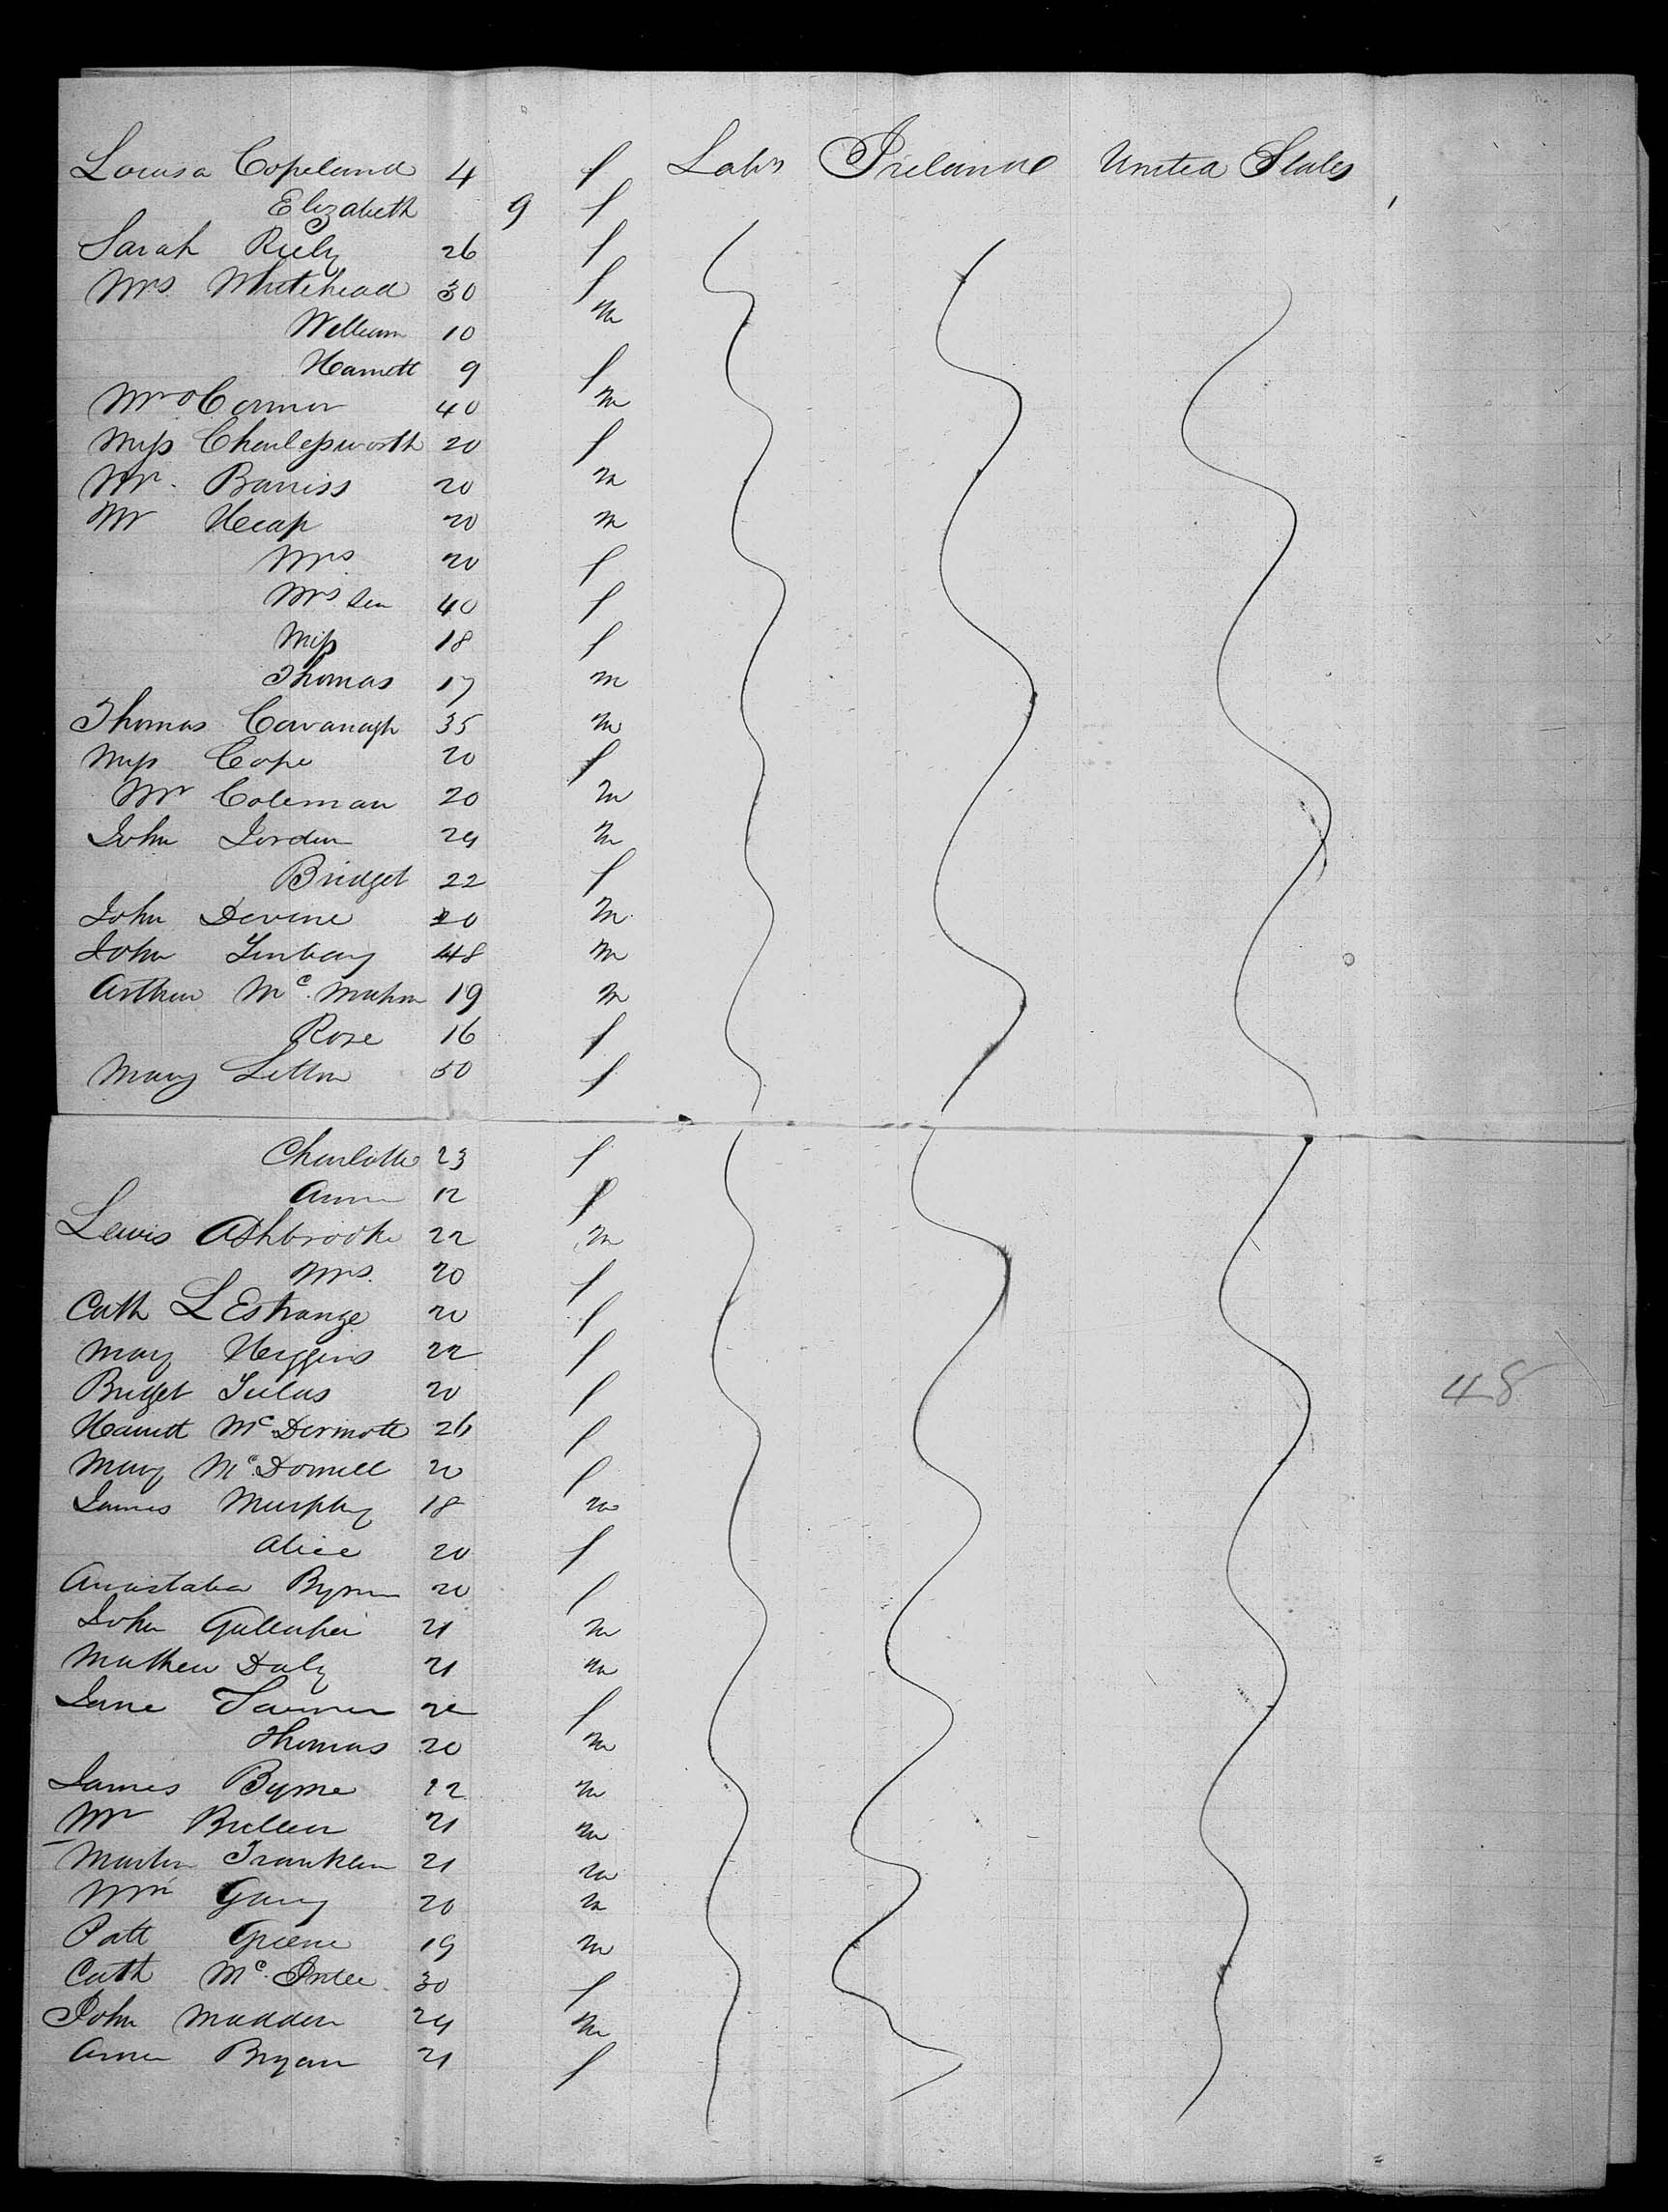 Louisa Copeland 4 f Labr Ireland United States
Elizabeth 9 f
Sarah Riely 26 f
Mrs Whitehead 30 f
William 10 m
Harriett 9 f
Mr O'Connor 40 m
Miss Charlesworth 20 f
Mr. Barriss 20 m
Mr Heap 20 m
Mrs 20 f
Mrs Sen 40 f
Miss 18 f
Thomas 17 m
Thomas Cavanagh 35 m
Miss Cope 20 f
Mr Coleman 20 m
John Jordan 24 m
Bridget 22 f
John Devine 20 m
John 48 m
Arthur Mc. Mahon 19 m
Rose 16 f
Mary Litton 50 f
Charlotte 23 f
Anne 12 f
Lewis Ashbrooke 22 m
Mrs. 20 f
Cath L Estrange 20 f
Mary Higgins 22 f
Bridget 20 f
Harriett Mc Dermott 26 f
Mary Mc. Donnell 20 f
James Murphy 18 m
Alice 20 f
Anastatia Byrne 20 f
John Gallagher 21 m
Mathew Daly 21 m
Jane 22 f
Thomas 20 m
James Byrne 22 m
Mr Bullen 21 m
Martin Franklin 21 m
Wm 20 m
Patt Greene 19 m
Cath Mc. Entee 30 f
John Madden 24 m
Anne Bryan 21 f
48